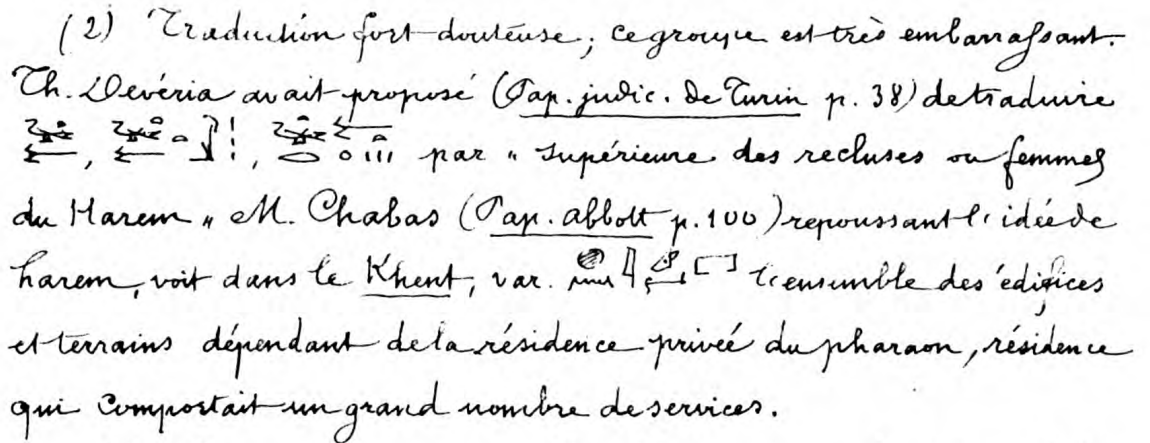 (2) Traduction fort douteuse; ce groupe est très embarrassant.
Th. Devéria avait proposé (Pap. judic. de Turin p. 38) de traduire
, , par " supérieure des recluses ou femmes
du Harem " M. Chabas (Pap. abbott p. 100) repoussant l'idée de
harem, voit dans le Khent, var. l'ensemble des édifices
et terrains dépendant de la résidence privée du pharaon, résidence
qui comportait un grand nombre de services.